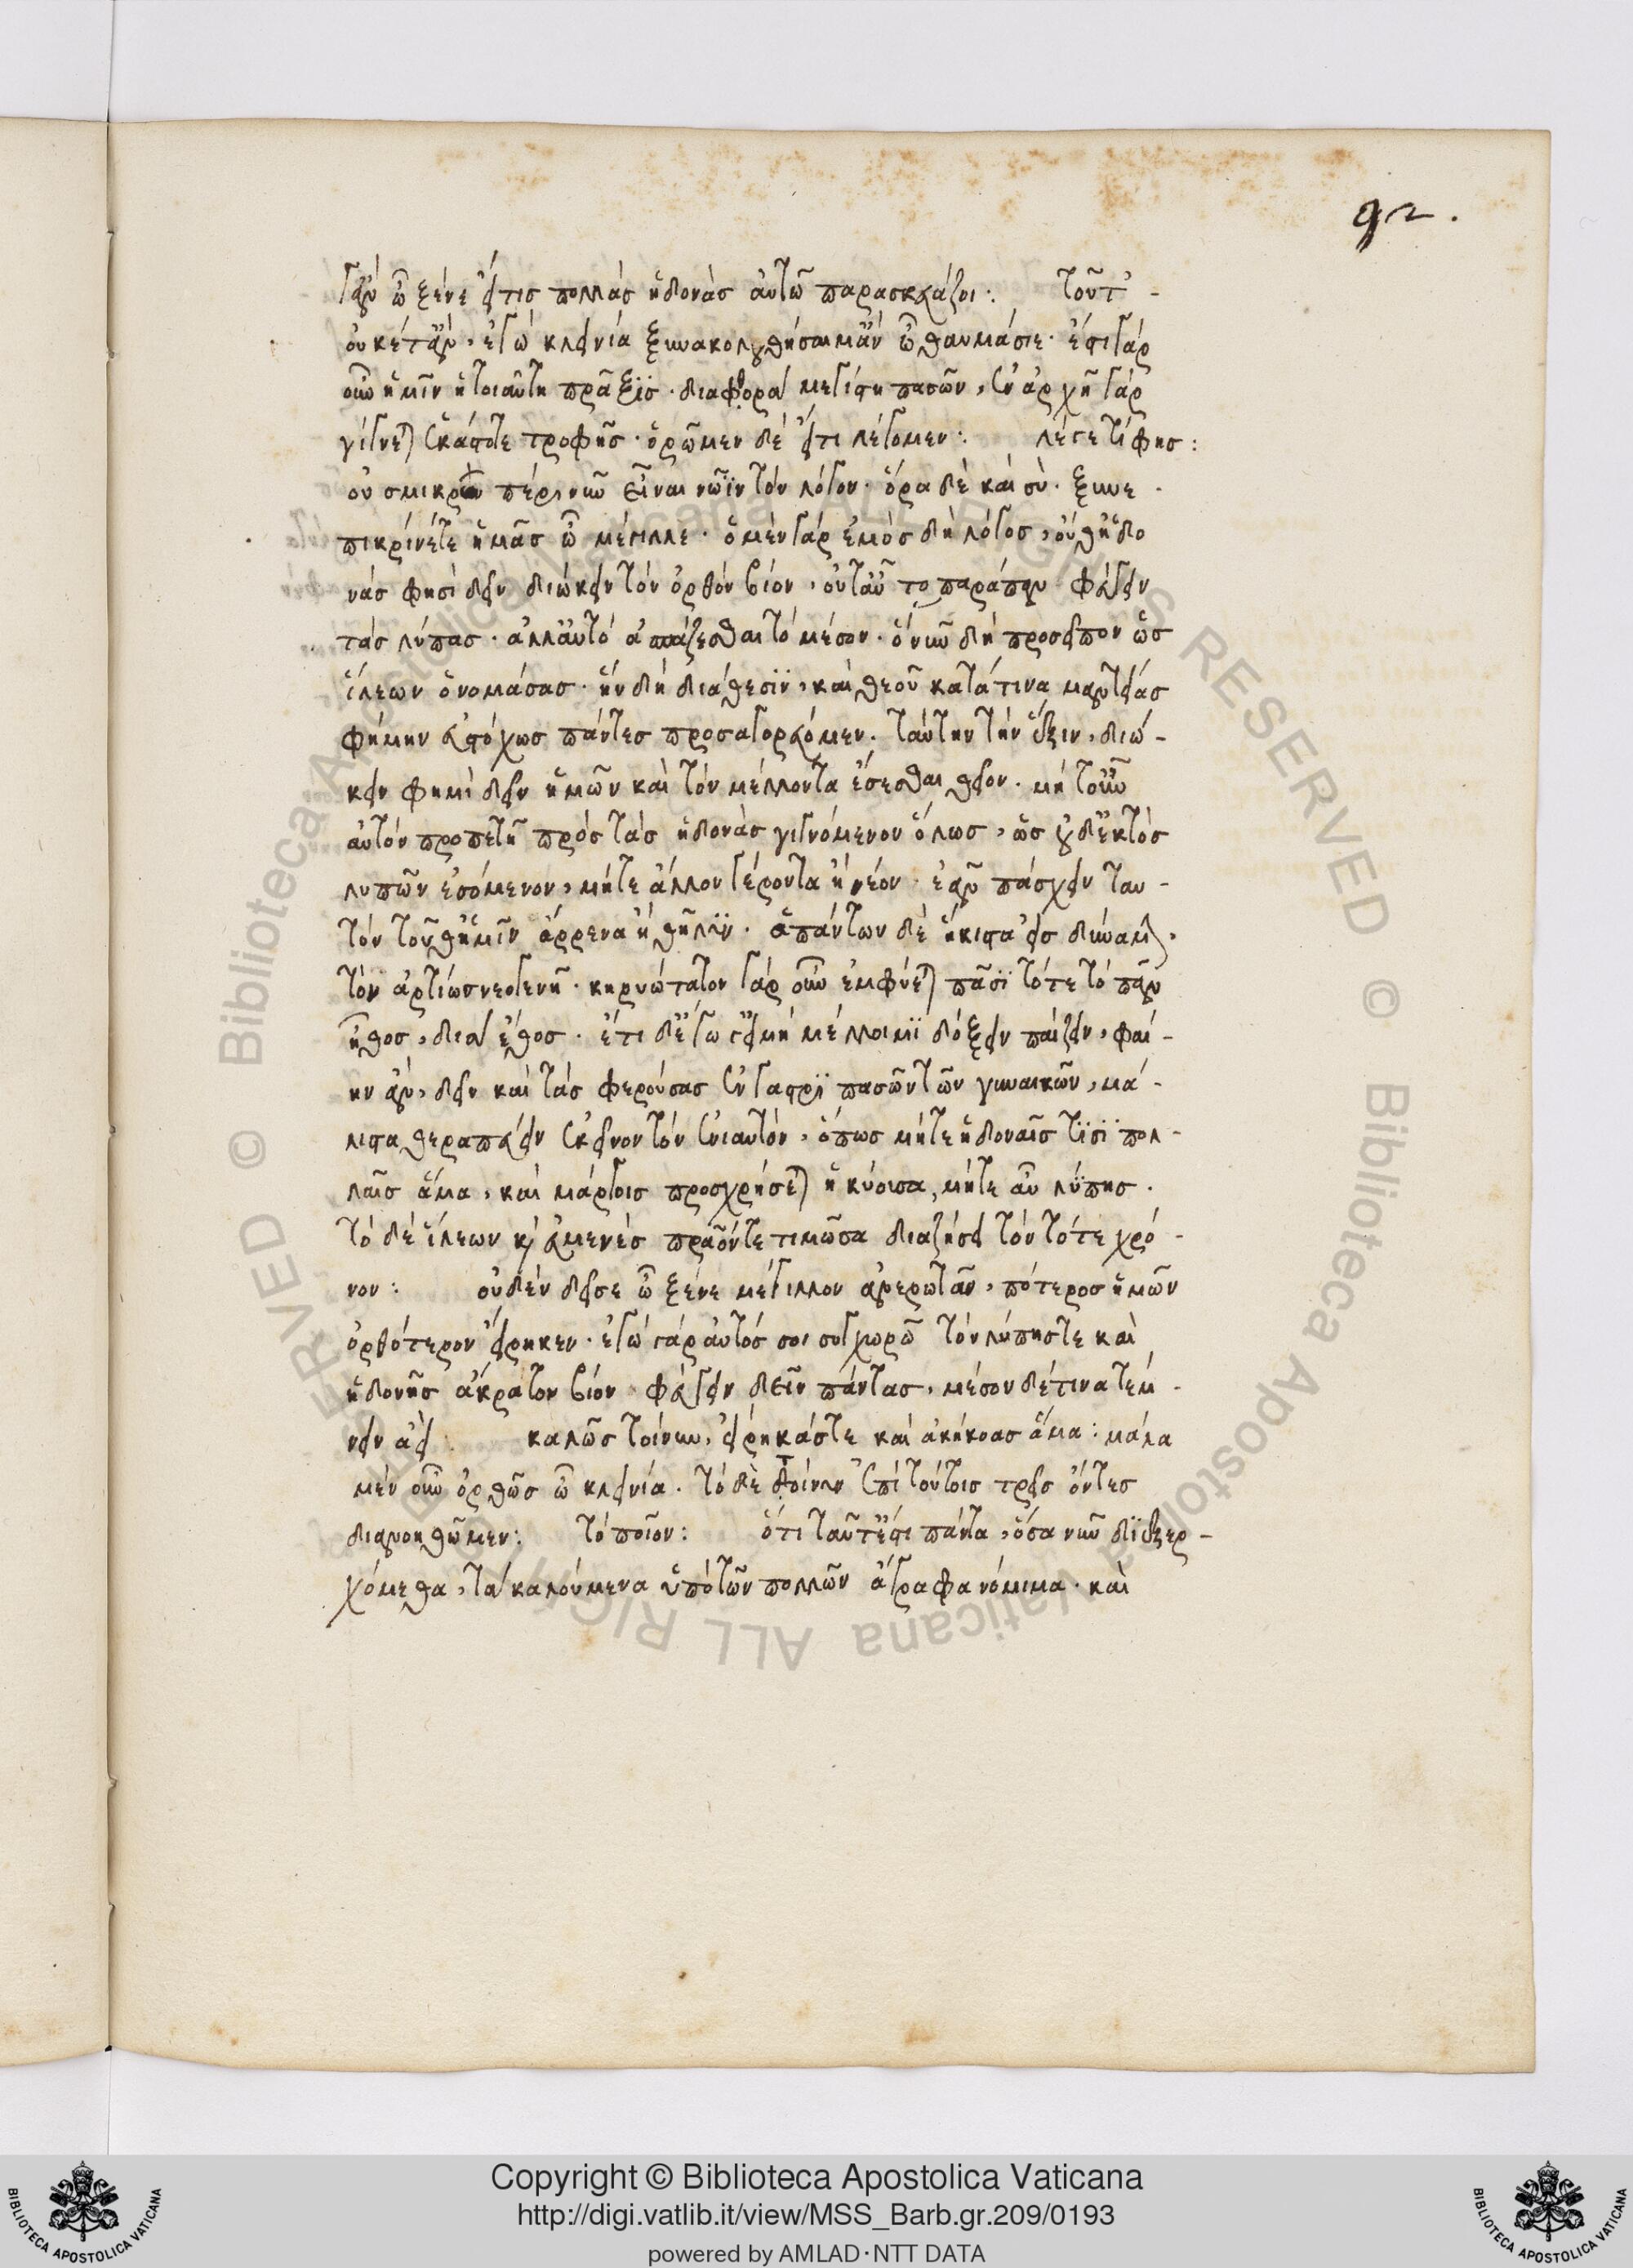 92.
γ' ἂν ὦ ξένε εἴ τις πολλὰς ἡδονὰς αὐτῷ παρασκευάζοι: τοῦτ' -
οὐκέτ' ἂν, ἐγὼ κλεινία ξυνακολουθήσαιμ' ἂν ὦ θαυμάσιε· ἔστι γὰρ
οὖν ἡμῖν ἡ τοιαύτη πρᾶξις· διαφθορὰ μεγίστη πασῶν, ἐν ἀρχῇ γὰρ
γίγνεται ἑκάστοτε τροφῆς· ὁρῶμεν δὲ εἴ τι λέγομεν: λέγε τί φῂς:
οὐ σμικρῶν πέρι νῦν εἶναι νῶϊν τὸν λόγον· ὅρα δὲ καὶ σὺ· ξυνε -
πικρίνετε ἡμᾶς ὦ μέγιλλε· ὁ μὲν γὰρ ἐμὸς δὴ λόγος, οὔθ' ἡδο
νάς φησι δεῖν διώκειν τὸν ὀρθὸν βίον, οὔτ' αὖ τὸ παράπαν φεύγειν
τὰς λύπας· ἀλλ' αὐτὸ ἀσπάζεσθαι τὸ μέσον· ὃ νῦν δὴ προσεῖπον ὡς
ἵλεων ὀνομάσας· ἣν δὴ διάθεσιν, καὶ θεοῦ κατά τινα μαντείας
φήμην εὐστόχως πάντες προσαγορεύομεν. ταύτην τὴν ἕξιν, διώ -
κειν φημὶ δεῖν ἡμῶν καὶ τὸν μέλλοντα ἔσεσθαι θεῖον· μήτ' οὖν
αὐτὸν προπετῆ πρὸς τὰς ἡδονὰς γιγνόμενον ὅλως, ὡς οὐδ' ἐκτὸς
λυπῶν ἐσόμενον, μήτε ἄλλον γέροντα ἢ νέον· ἐᾶν πάσχειν ταυ -
τὸν τοῦθ' ἡμῖν ἄρρενα ἢ θῆλυν· ἁπάντων δὲ ἥκιστα εἰς δύναμιν,
τὸν ἀρτίως νεογενῆ· κυριώτατον γὰρ οὖν ἐμφύεται πᾶσι τότε τὸ πᾶν
ἦθος, διὰ ἔθος· ἔτι δ' ἔγωγ' εἰ μὴ μέλλοιμι δόξειν παίζειν, φαί -
ην ἂν, δεῖν καὶ τὰς φερούσας ἐν γαστρὶ πασῶν τῶν γυναικῶν, μά -
λιστα θεραπεύειν ἐκεῖνον τὸν ἐνιαυτόν, ὅπως μήτε ἡδοναῖς τισὶ πολ -
λαῖς ἅμα, καὶ μάργοις προσχρήσεται ἡ κύουσα, μήτε αὖ λύπης.
τὸ δὲ ἵλεων καὶ εὐμενὲς πρᾶόν τε τιμῶσα διαζήσει τὸν τότε χρό -
νον: οὐδὲν δεῖ σε ὦ ξένε μέγιλλον ἀνερωτᾶν, πότερος ἡμῶν
ὀρθότερον εἴρηκεν· ἐγὼ γὰρ αὐτός σοι συγχωρῶ τὸν λύπης τε καὶ
ἡδονῆς ἄκρατον βίον φεύγειν δεῖν πάντας, μέσον δέ τινα τέμ -
νειν ἀεὶ: καλῶς τοίνυν, εἴρηκάς τε καὶ ἀκήκοας ἅμα: μάλα
μὲν οὖν ὀρθῶς ὦ κλεινία. τὸ δὲ τοίνυν ἐπὶ τούτοις τρεῖς ὄντες
διανοηθῶμεν: τὸ ποῖον: ὅτι ταῦτ' ἔστι πάντα, ὅσα νῦν διεξερ -
χόμεθα, τὰ καλούμενα ὑπὸ τῶν πολλῶν ἄγραφα νόμιμα· καὶ
Copyright © Biblioteca Apostolica Vaticana
http://digi.vatlib.it/view/MSS_Barb.gr.209/0193
powered by AMLAD·NTT DATA